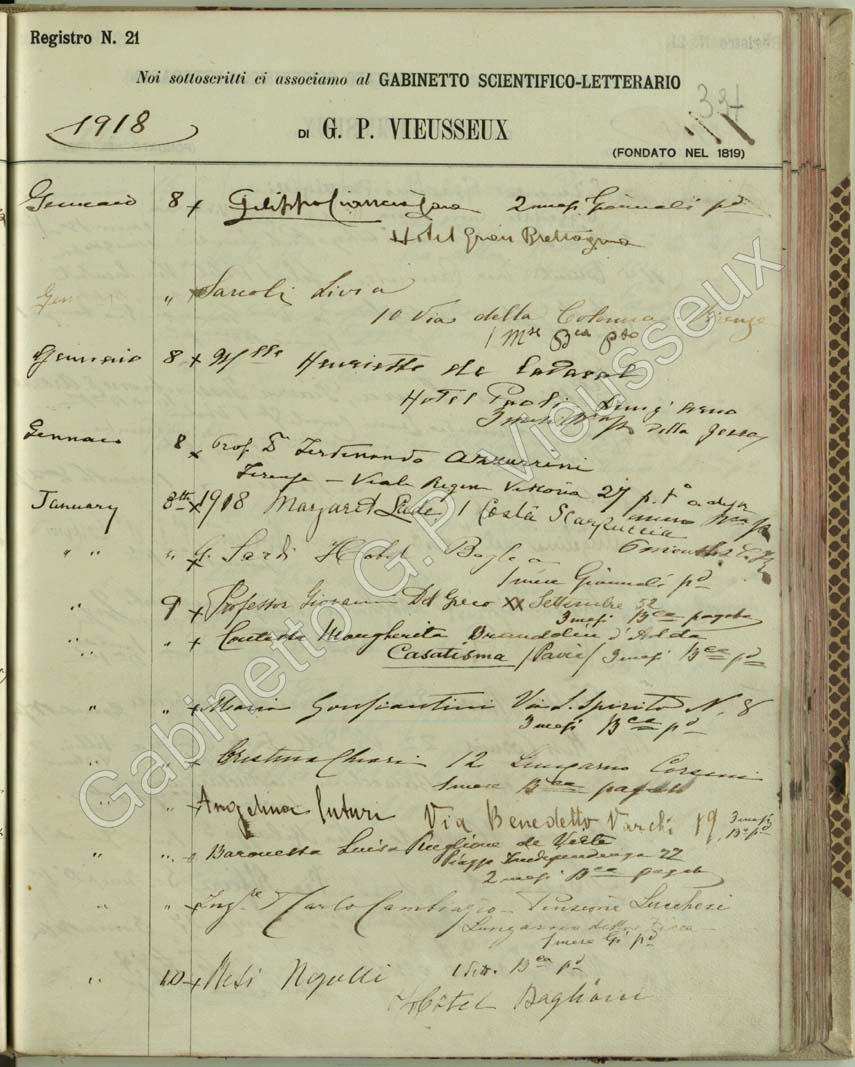 Registro N. 21
Noi sottoscritti ci associamo al GABINETTO SCIENTIFICO-LETTERARIO
1918
DI G. P. VIEUSSEUX
(FONDATO NEL 1819)
Gennaio 8 x Filippo 2 mesi Giornali pd
Hotel Gran Brettagna
Gen " x Sarcoli Livia
10 Via della Colonna Firenze
1 Mse Bca pto
Gennaio 8 x Mlle Henriette de
Hotel Paoli Lung'arno
3 mesi della Zecca
Gennaio 8 x Prof. Dr Ferdinando Azzurrini
Firenze - Viale Regina Vittoria 27 p. to
January 8th x 1918 Margaret 1 Costa Scarpuccia
6 months
" " " x G. Sardi Hotel
1 mese Giornali pd
" 9 x Professor Giovanni Del Greco XX Settembre 52
3 mesi Bca pagato
" " x Contessa Margherita Brandolin d'Adda
Casatisma /Pavia/ 3 mesi Bca pd
" " x Maria Gonfiantini Via S. Spirito N. 8
3 mesi Bca pd
" " x Cristina Chiari 12 Lungarno Corsini
1 mese Bca pagato
" " x Angelina Via Benedetto Varchi 19 3 mesi
Bca pd
" " x Baronessa Luisa
Piazza Indipendenza 22
2 mesi Bca pagato
" " x Ingre Carlo Cambiagio - Pensione Lucchesi
Lungarno della Zecca
1 mese Gi pd
" 10 x Nesi 1 Sett. Bca pd
Hôtel Baglioni
Gabinetto G.P. Vieusseux